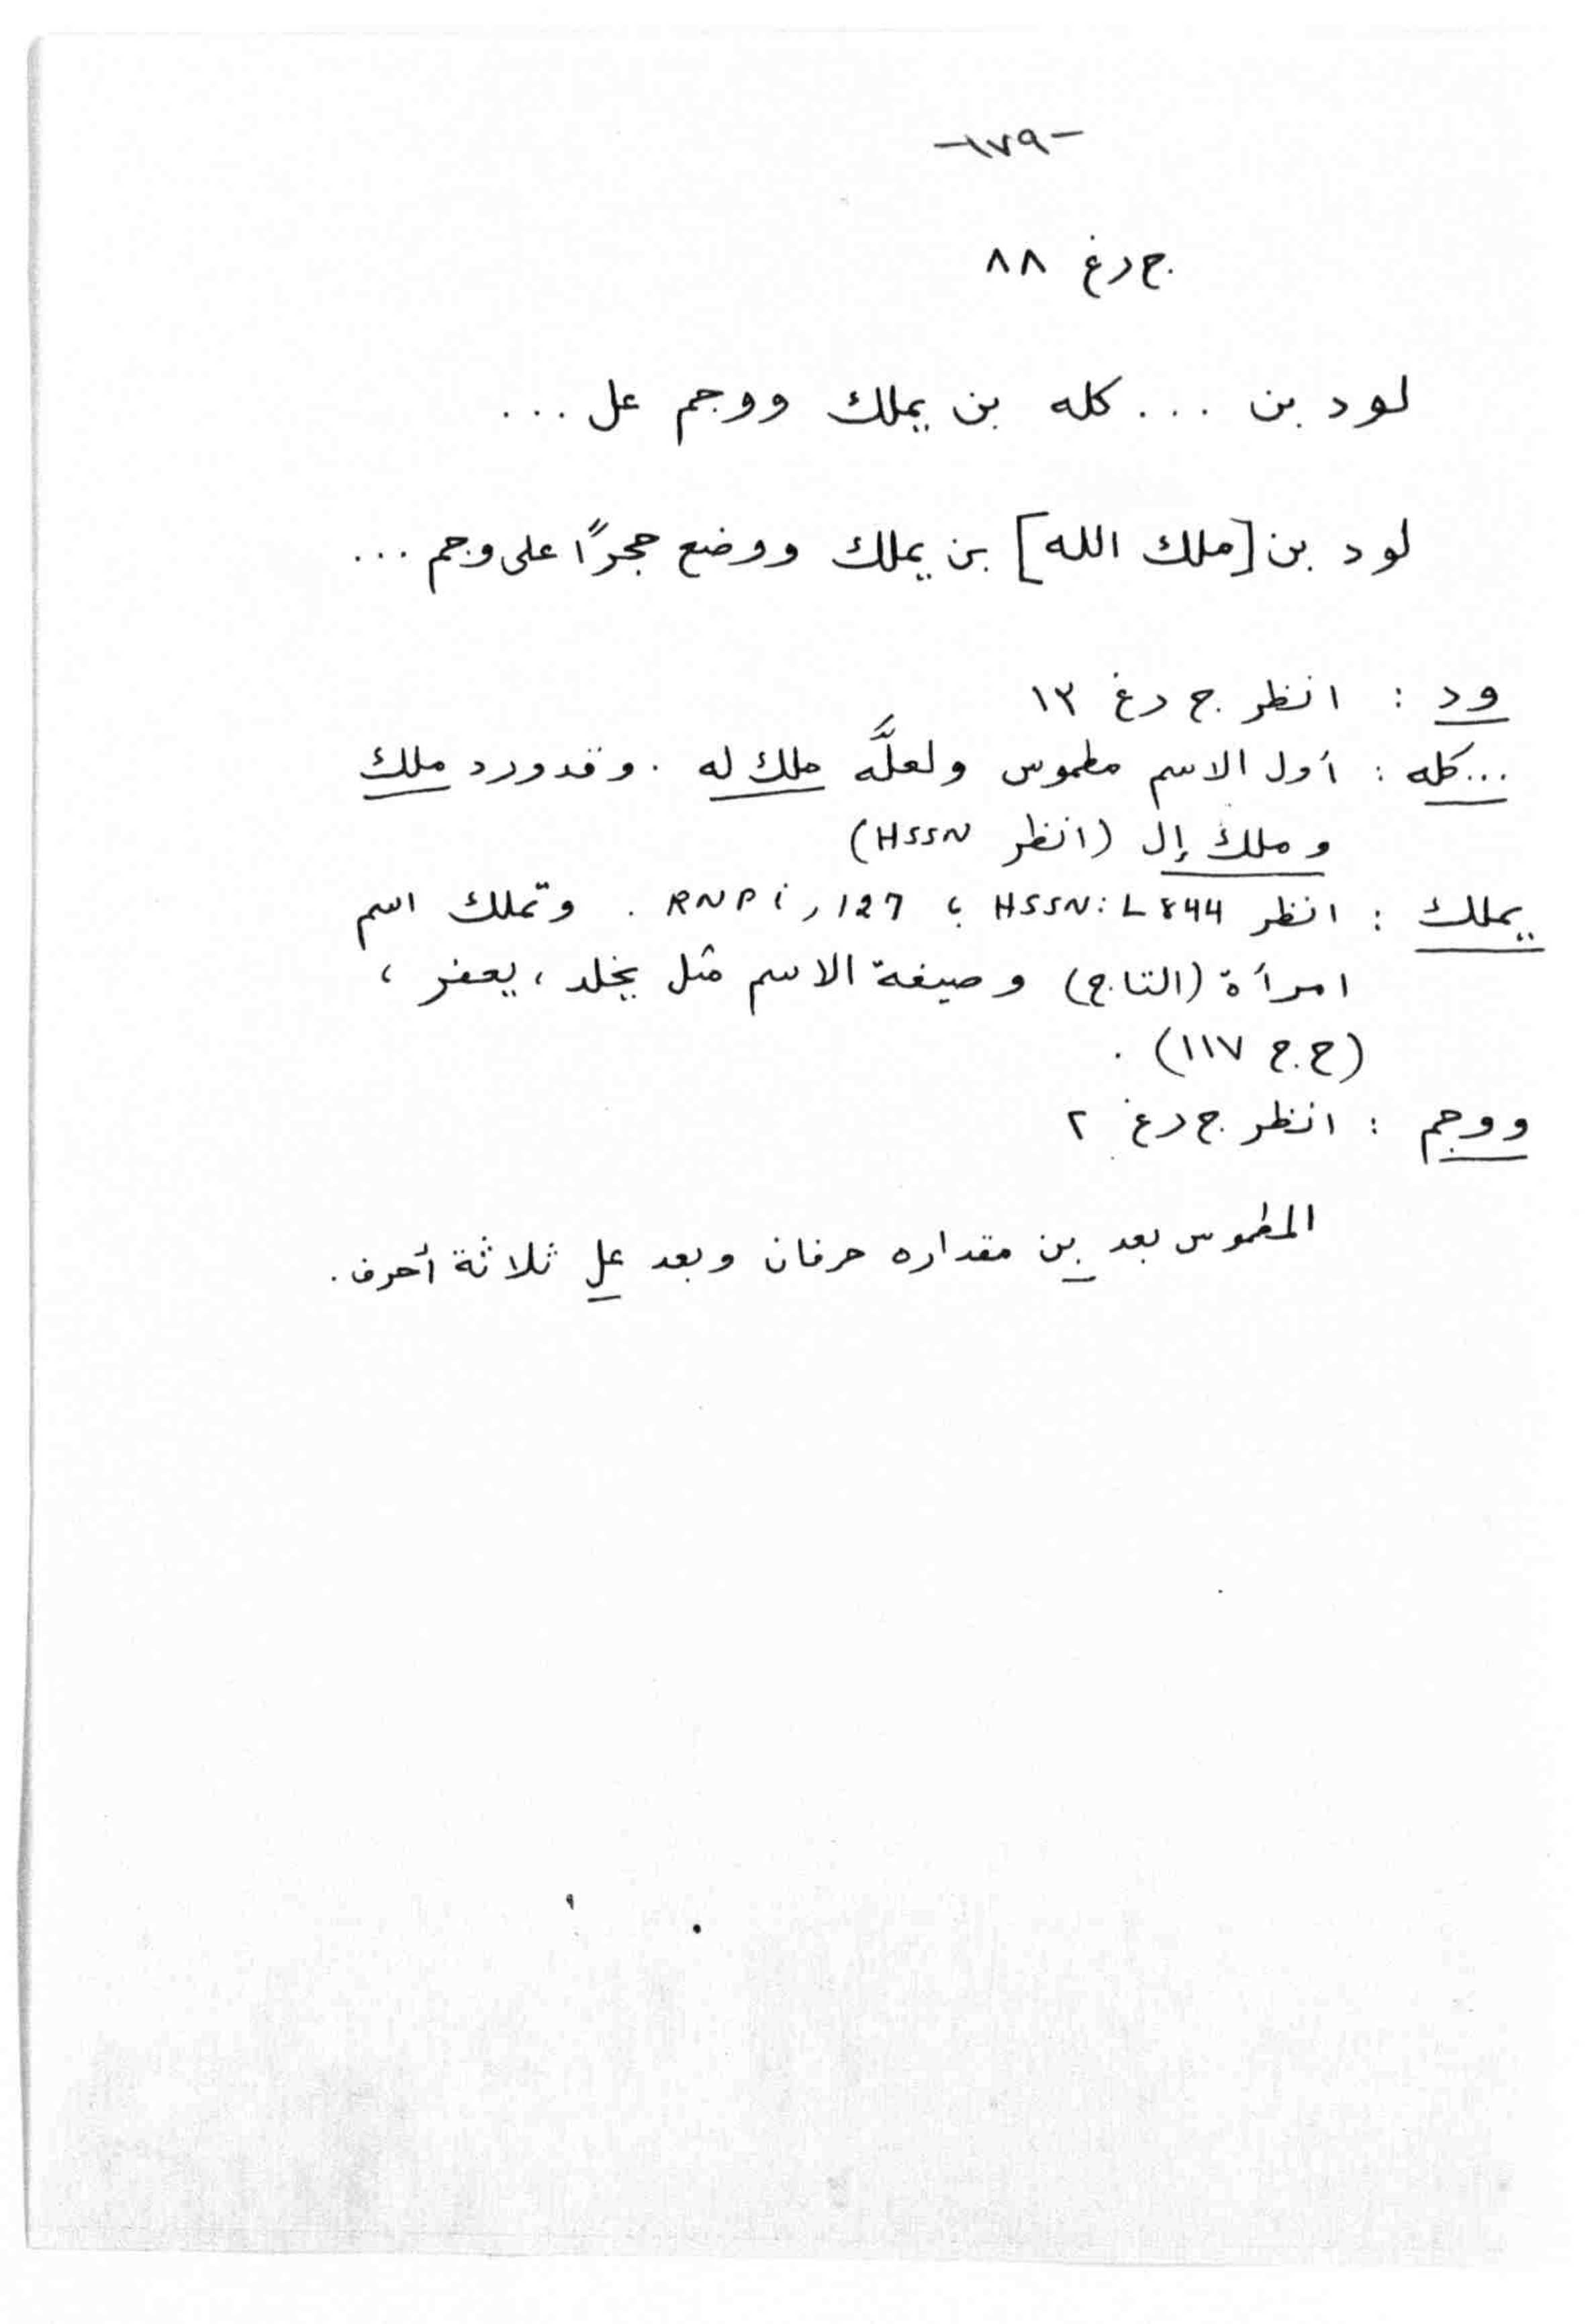 -١٧٩-
ج دغ ٨٨
لود بن ... كله بن يملك ووجم عل ...
لود بن [ملك الله] بن يملك ووضع حجرًا على وجم ...
ود : انظر ج دغ ١٣
...كله : أول الاسم مطموس ولعلَّه ملك له . وقد ورد ملك
وملك إل (انظر HSSN)
يملك : انظر HSSN: L 844 ؛ RNP i, 127 . وتملك اسم
امرأة (التاج) وصيغة الاسم مثل يخلد ، يعفر ،
(ح ج ١١٧) .
ووجم : انظر ج دغ ٢
المطموس بعد بن مقداره حرفان وبعد عل ثلاثة أحرف .